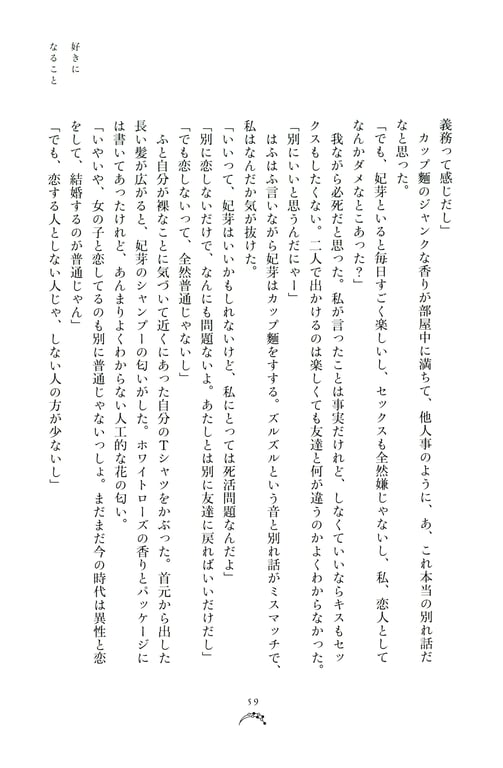 義務って感じだし」
　カップ麺のジャンクな香りが部屋中に満ちて、他人事のように、あ、これ本当の別れ話だ
なと思った。
「でも、妃芽といると毎日すごく楽しいし、セックスも全然嫌じゃないし、私、恋人として
なんかダメなとこあった？」
　我ながら必死だと思った。私が言ったことは事実だけれど、しなくていいならキスもセッ
クスもしたくない。二人で出かけるのは楽しくても友達と何が違うのかよくわからなかった。
「別にいいと思うんだにゃー」
　はふはふ言いながら妃芽はカップ麺をすする。ズルズルという音と別れ話がミスマッチで、
私はなんだか気が抜けた。
「いいって、妃芽はいいかもしれないけど、私にとっては死活問題なんだよ」
「別に恋しないだけで、なんにも問題ないよ。あたしとは別に友達に戻ればいいだけだし」
「でも恋しないって、全然普通じゃないし」
　ふと自分が裸なことに気づいて近くにあった自分のTシャツをかぶった。首元から出した
長い髪が広がると、妃芽のシャンプーの匂いがした。ホワイトローズの香りとパッケージに
は書いてあったけれど、あんまりよくわからない人工的な花の匂い。
「いやいや、女の子と恋してるのも別に普通じゃないっしょ。まだまだ今の時代は異性と恋
をして、結婚するのが普通じゃん」
「でも、恋する人としない人じゃ、しない人の方が少ないし」
好きに
なること
59